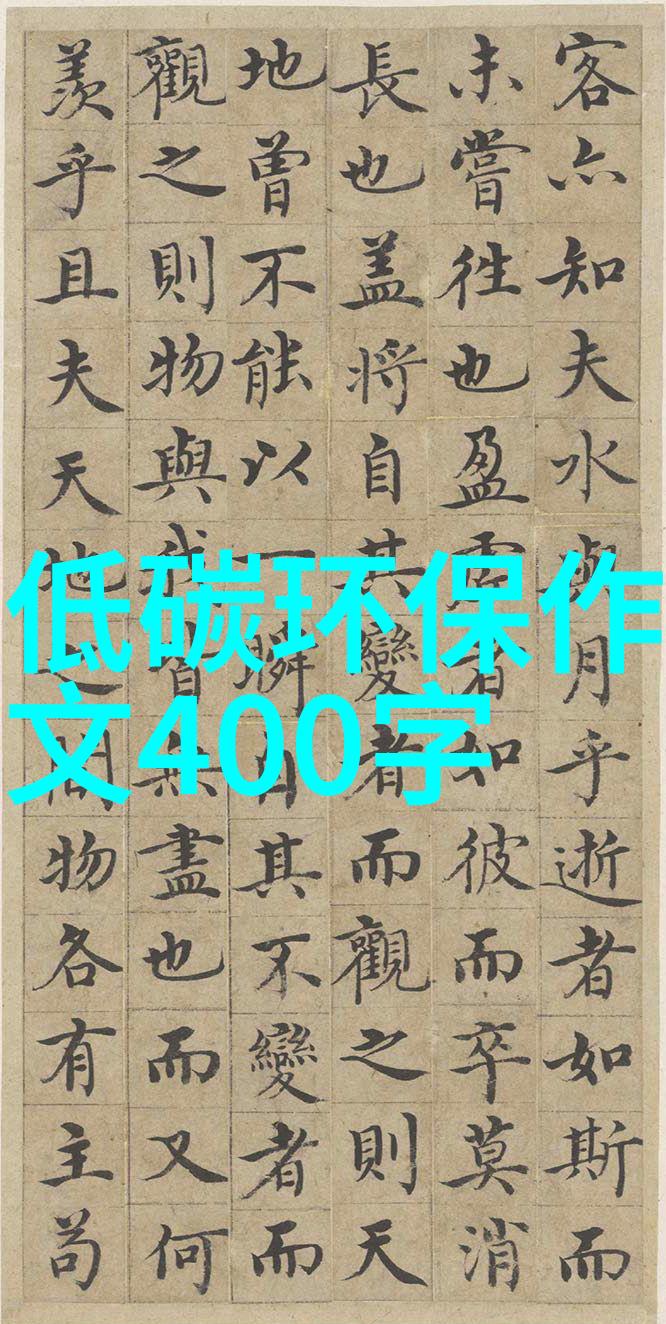 客亦知夫水與月乎逝者如斯而
未嘗往也盈虛者如彼而卒莫消
長也盖將自其變者而觀之則天
地曾不能以一瞬自其不變者而
觀之則物與我皆無盡也而又何
羨乎且夫天地之間物各有主苟
低碳环保作
文400字